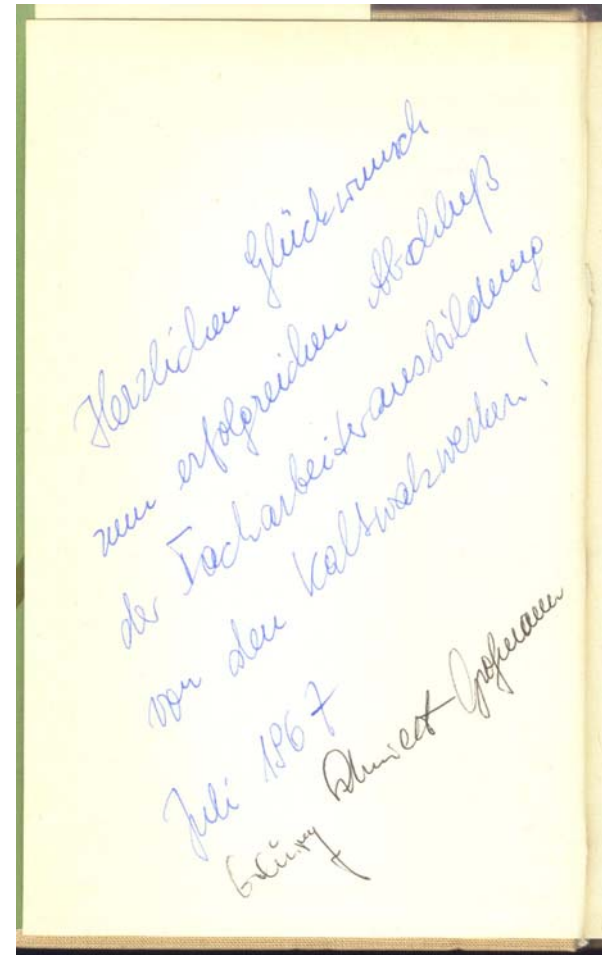 Herzlichen Glückwunsch
zum erfolgreichen Abschluß
der Facharbeiterausbildung
von den Kaltwalzwerken!
Juli 1967
Schmidt Großmann